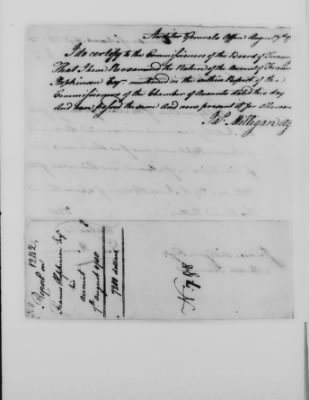 Auditor Generals Office Augt
I do certify to the Commissioners of the Board of
That I have Examined the State of the Account of Francis
Hopkinson Esqr mentioned in the within Report of the
Commissioners of the Chamber of Accounts dated this day
And now passed the same And now present it for
Jas. Milligan
1242
Report on
Francis Hopkinson Esqr
his
Account
7th August 1780
7200 dollars
No